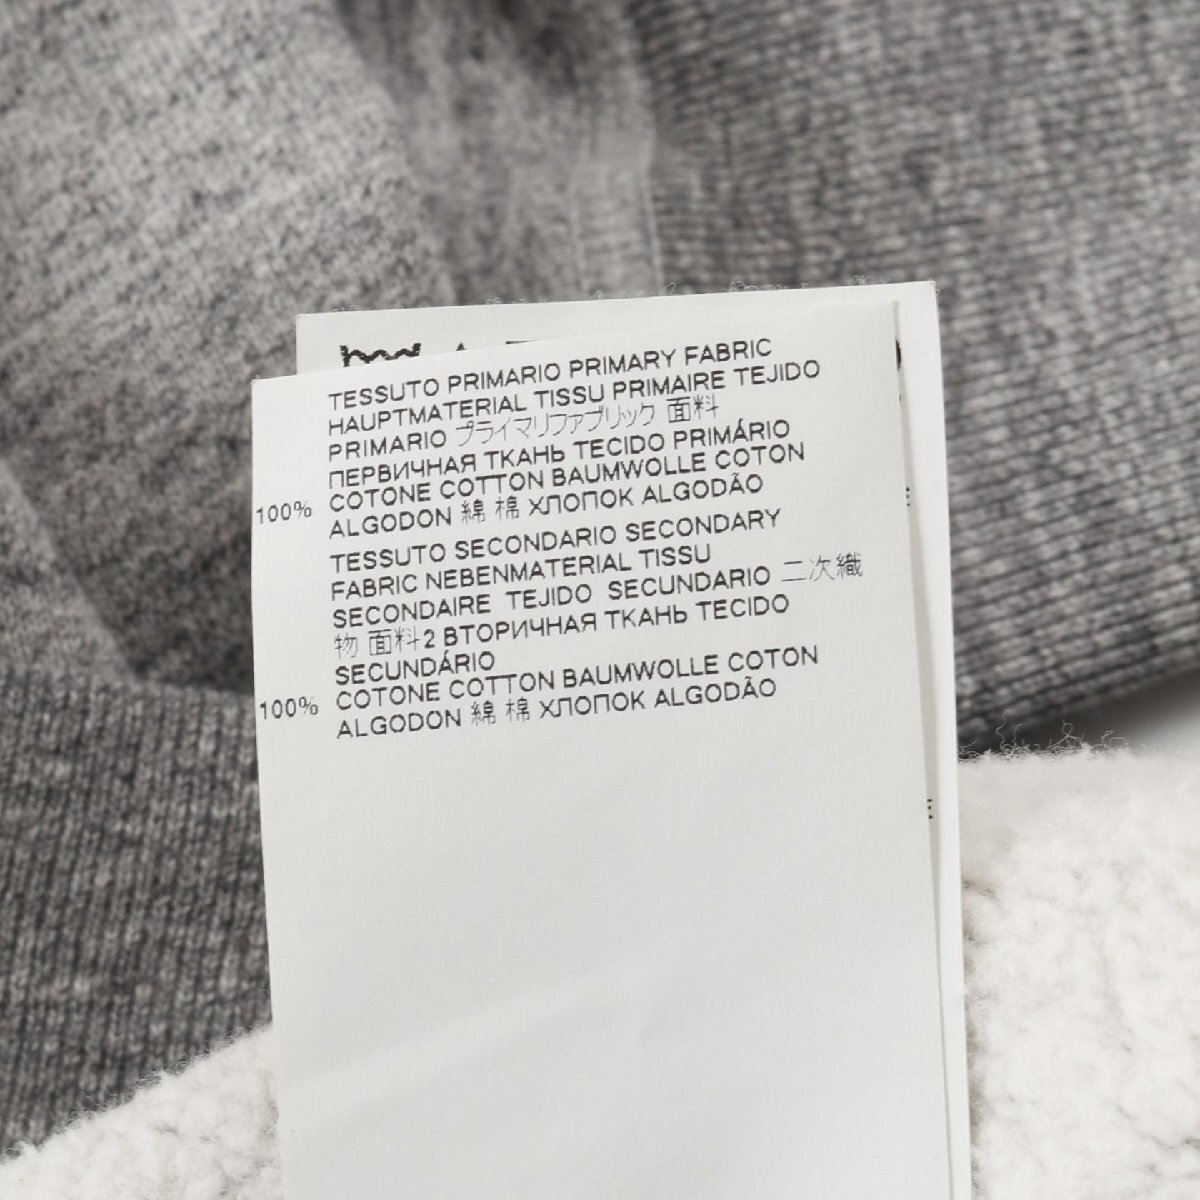 TESSUTO PRIMARIO PRIMARY FABRIC
HAUPTMATERIAL TISSU PRIMAIRE TEJIDO
PRIMARIO プライマリファブリック 面料
ПЕРВИЧНАЯ ТКАНЬ TECIDO PRIMÁRIO
100% COTONE COTTON BAUMWOLLE COTON
ALGODON 綿 棉 ХЛОПОК ALGODÃO
TESSUTO SECONDARIO SECONDARY
FABRIC NEBENMATERIAL TISSU
SECONDAIRE TEJIDO SECUNDARIO 二次織
物 面料2 ВТОРИЧНАЯ ТКАНЬ TECIDO
SECUNDÁRIO
100% COTONE COTTON BAUMWOLLE COTON
ALGODON 綿 棉 ХЛОПОК ALGODÃO